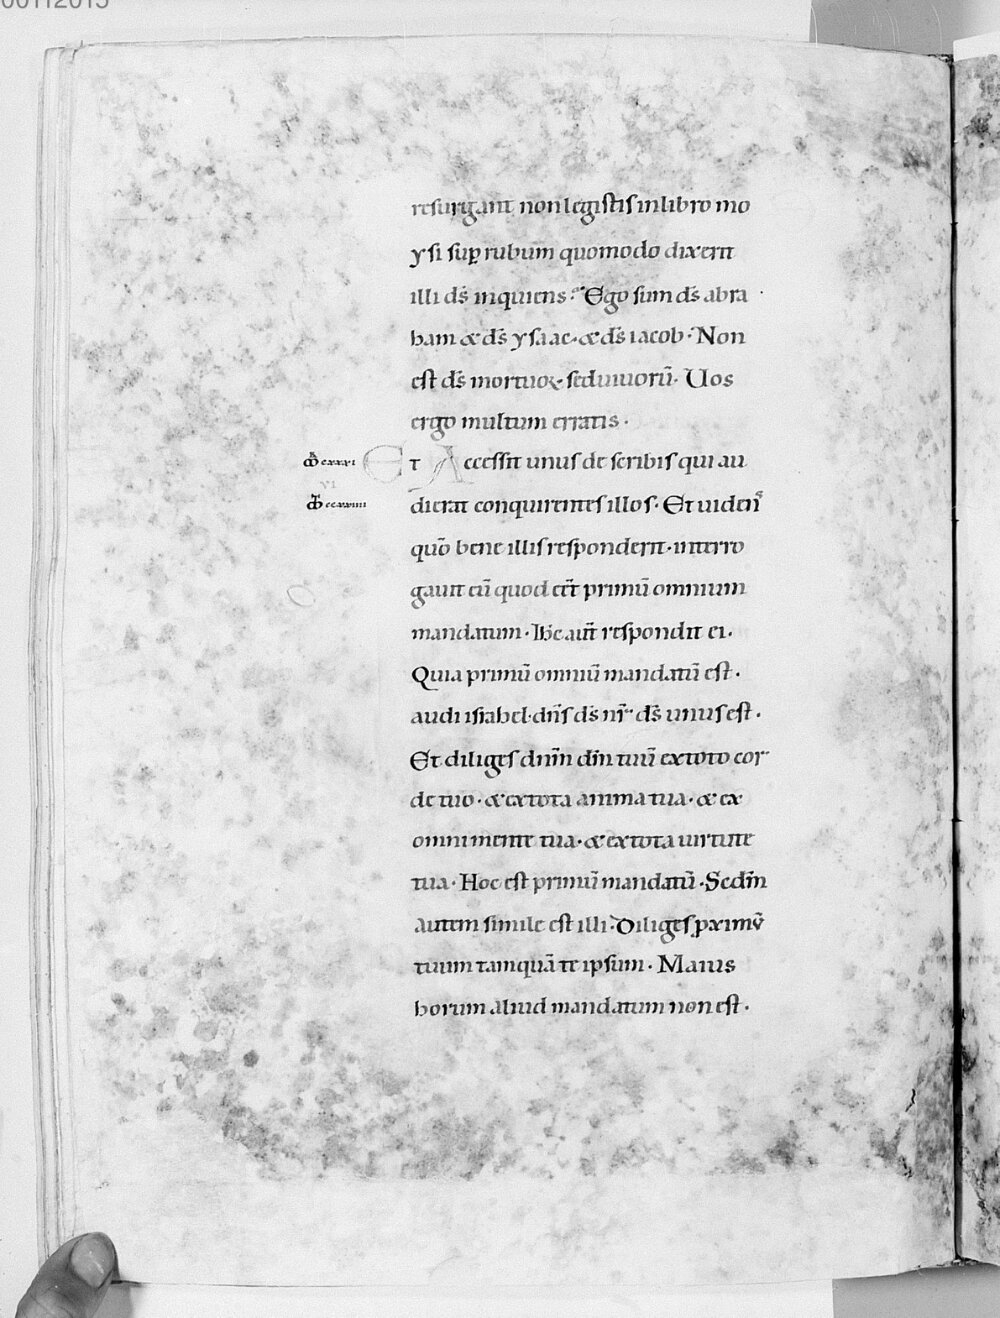 00112015
resurgant non legistis in libro mo
ysi sup rubum quomodo dixerit
illi d̄s inquiens · Ego sum d̄s abra
ham & d̄s ysaac · & d̄s iacob · Non
est d̄s mortuoꝝ sed uiuorū · Uos
ergo multum erratis ·
Et Accessit unus de scribis qui au
dierat conquirentes illos · Et uidens
quō bene illis responderit · interro
gauit eū quod eēt primū omnium
mandatum · Ihc aut̄ respondit ei ·
Quia primū omniū mandatū est ·
audi israhel · dn̄s d̄s nr̄ · d̄s unus est ·
Et diliges dnm̄ dm̄ tuū ex toto cor
de tuo · & ex tota anima tua · & ex
omni mente tua · & ex tota uirtute
tua · Hoc est primū mandatū · Scdm̄
autem simile est illi · Diliges pximū
tuum tamquā te ipsum · Maius
horum aliud mandatum non est ·